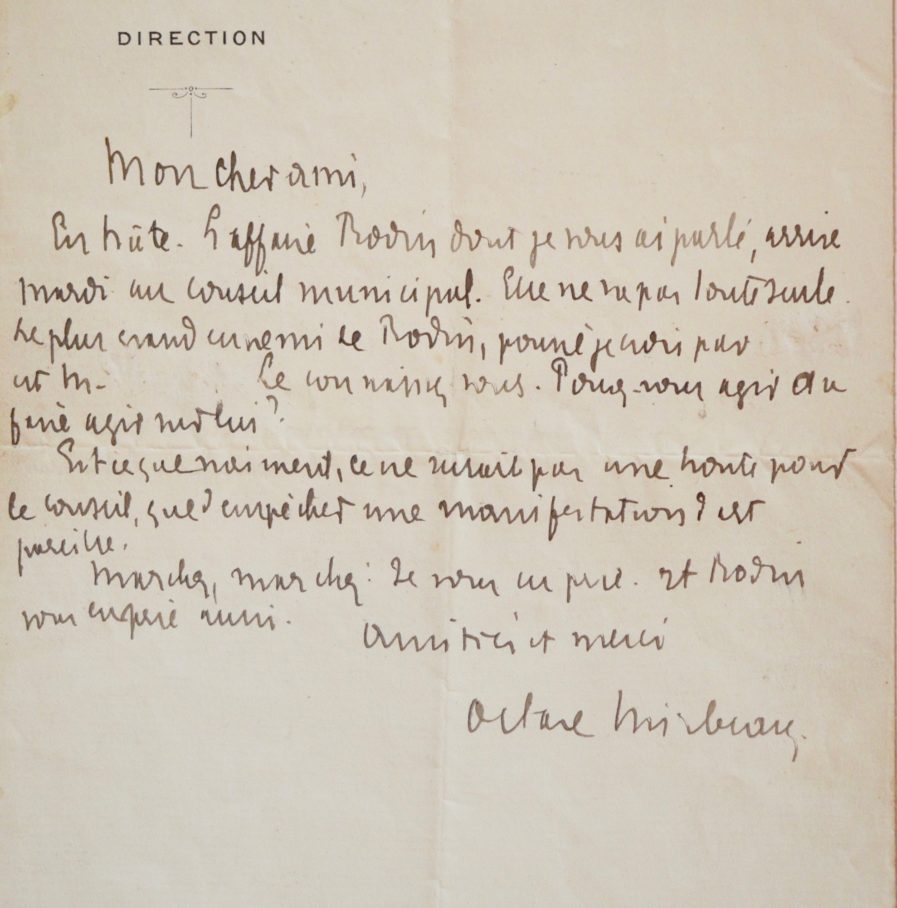 DIRECTION
Mon cher ami,
En hâte. L'affaire Rodin dont je vous ai parlé, arrive
mardi au conseil municipal. Elle ne va pas toute seule.
Le plus grand ennemi de Rodin, poussé je crois par
est M. Le connaissez vous. Pouvez-vous agir ou
faire agir sur lui?
Est ce que vraiment, ce ne serait pas une honte pour
le conseil, que d'empêcher une manifestation d'art
pareille.
Marchez, marchez: Je vous en prie. et Rodin
vous en prie aussi.
Amitiés et merci
Octave Mirbeau